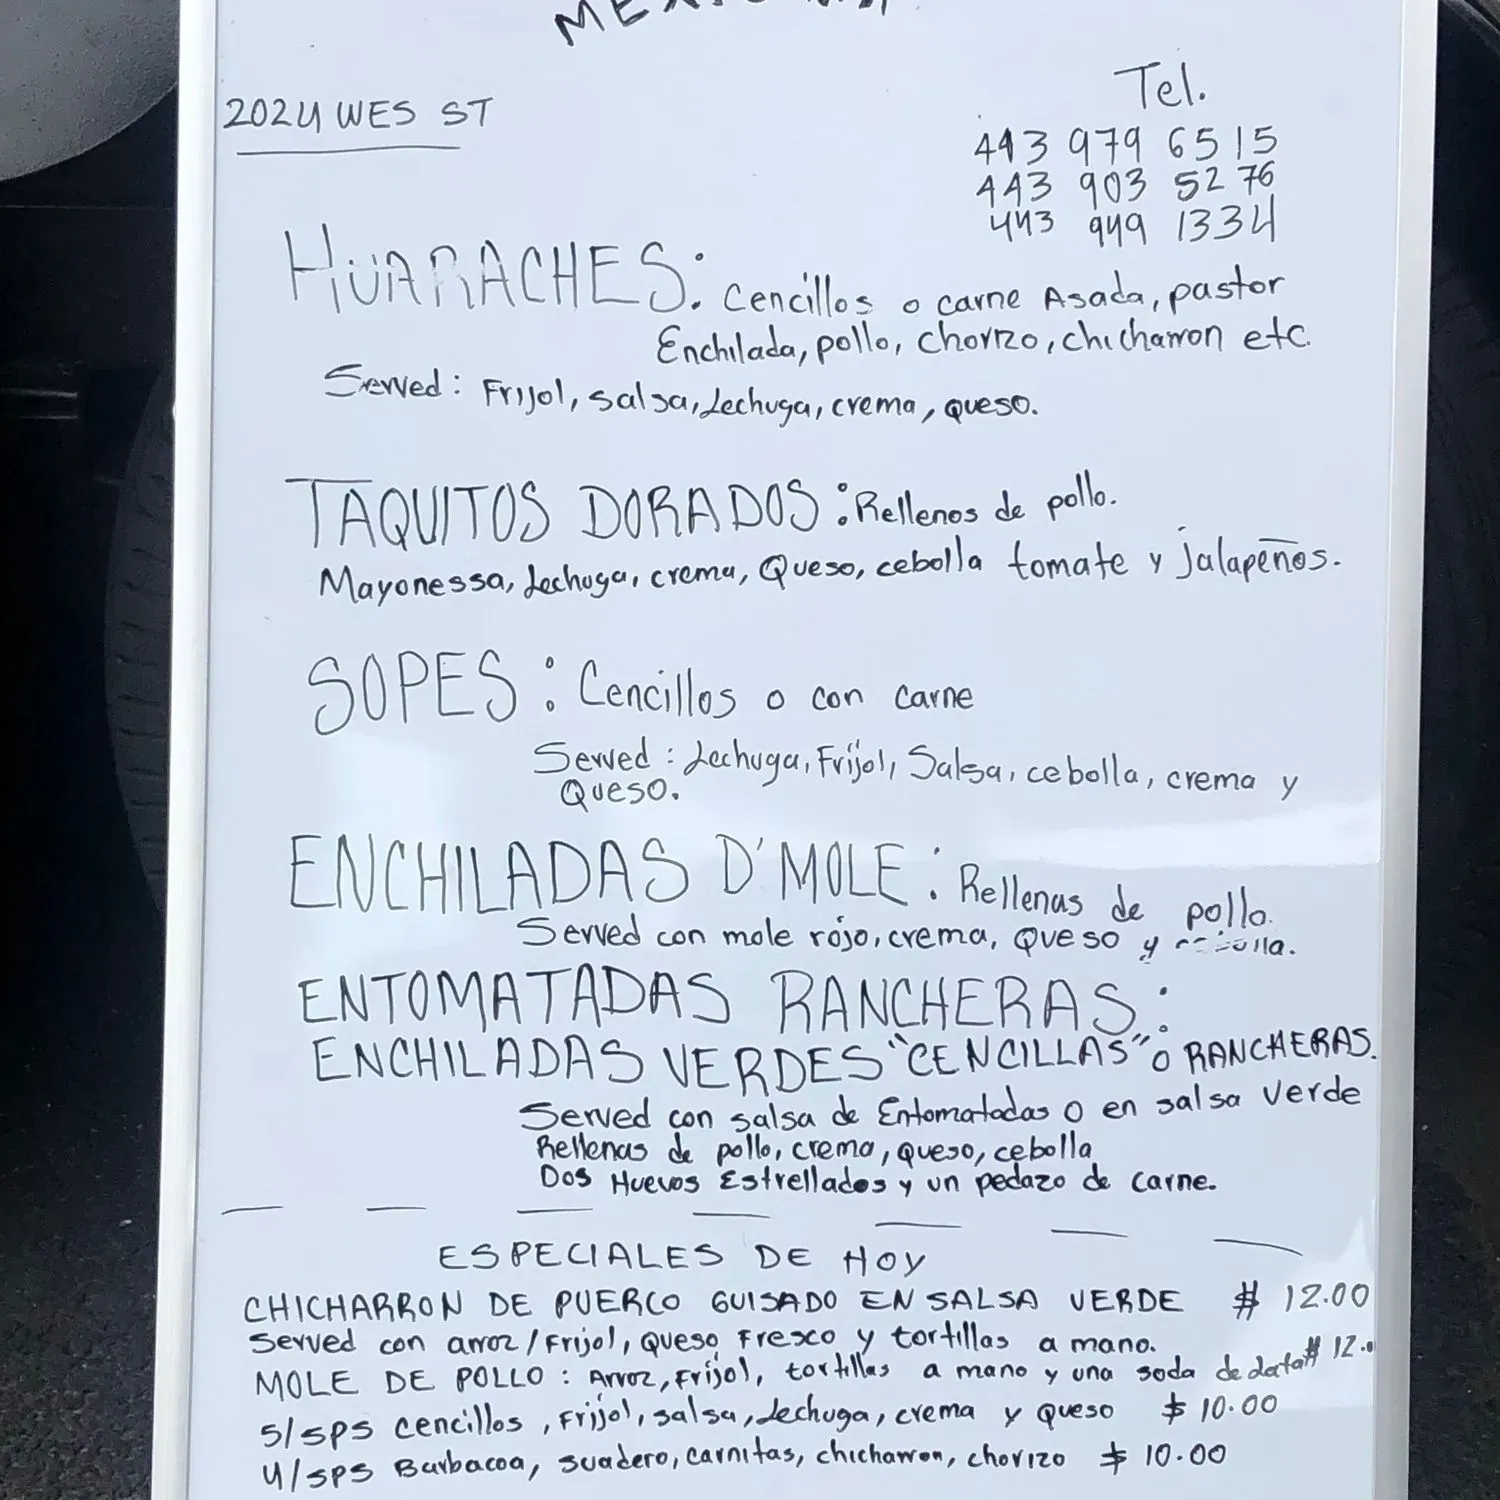 2024 WES ST
Tel.
443 979 6515
443 903 5276
443 949 1334
HUARACHES: Cencillos o carne Asada, pastor
Enchilada, pollo, chorizo, chicharron etc.
Served: Frijol, salsa, Lechuga, crema, queso.
TAQUITOS DORADOS: Rellenos de pollo.
Mayonessa, Lechuga, crema, Queso, cebolla tomate y jalapeños.
SOPES: Cencillos o con carne
Served: Lechuga, Frijol, Salsa, cebolla, crema y
Queso.
ENCHILADAS D'MOLE: Rellenas de pollo.
Served con mole rojo, crema, Queso y cebolla.
ENTOMATADAS RANCHERAS:
ENCHILADAS VERDES "CENCILLAS" o RANCHERAS.
Served con salsa de Entomatadas O en salsa verde
Rellenas de pollo, crema, queso, cebolla
Dos Huevos Estrellados y un pedazo de carne.
ESPECIALES DE HOY
CHICHARRON DE PUERCO GUISADO EN SALSA VERDE # 12.00
Served con arroz/Frijol, queso Fresco y tortillas a mano.
MOLE DE POLLO: Arroz, Frijol, tortillas a mano y una soda de lata # 12.
5/sps Cencillos, Frijol, salsa, Lechuga, crema y queso $ 10.00
4/sps Barbacoa, suadero, carnitas, chicharron, chorizo $ 10.00